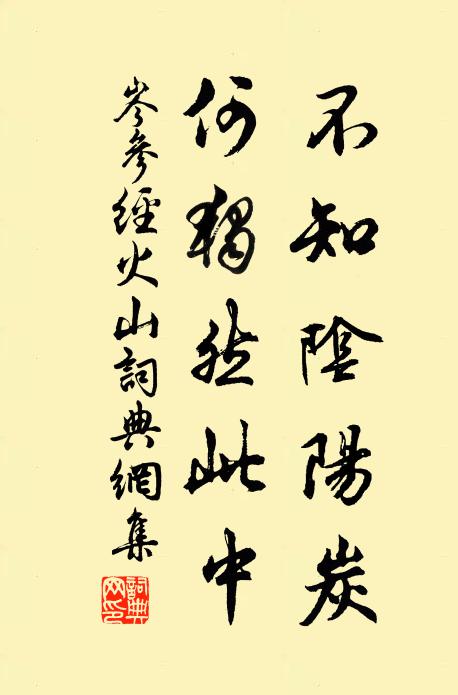 不知陰陽炭
何獨然此中
岑參經火山詞典網集
詞典网印